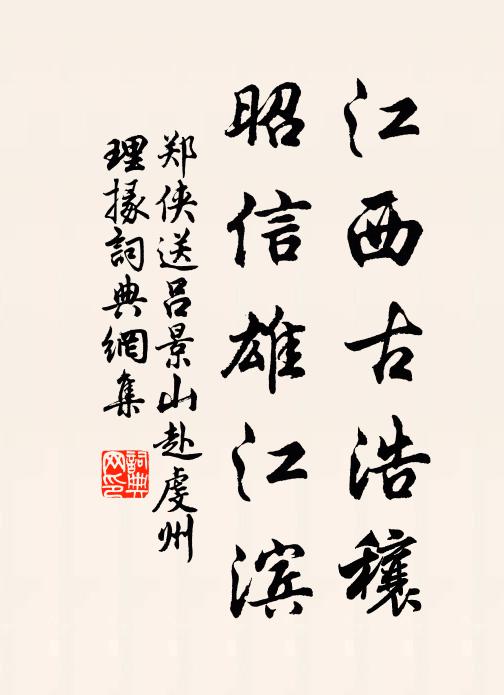 江西古浩穰
昭信雄江滨
郑侠送吕景山赴虔州
理掾詞典網集
詞典网印